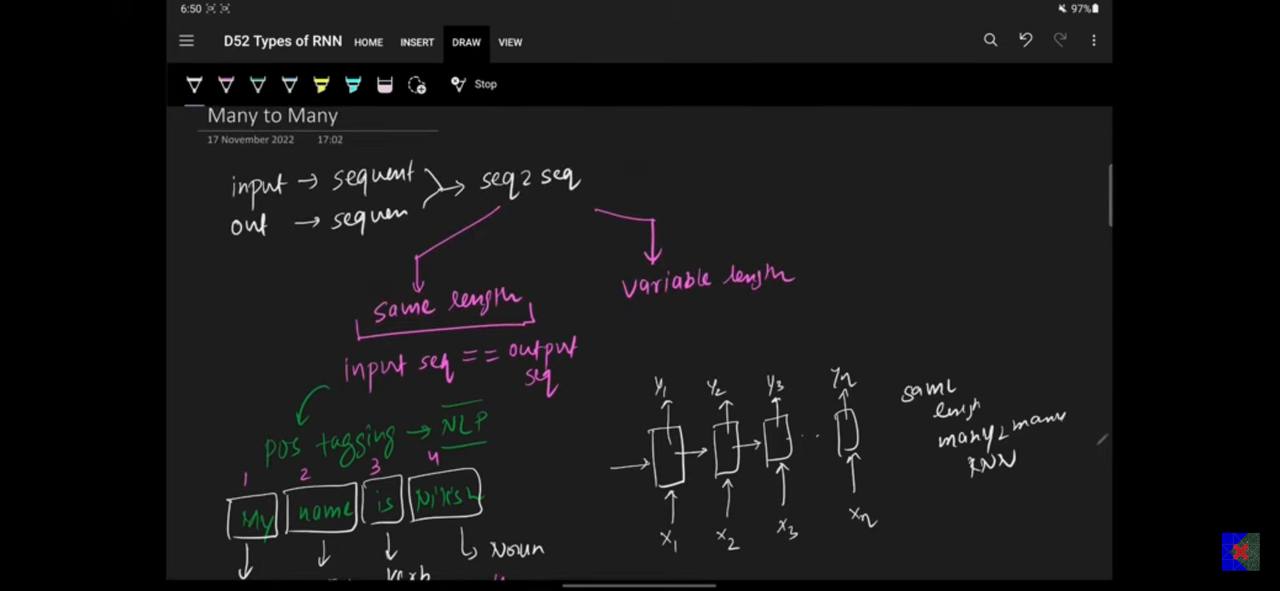 6:50
97%
D52 Types of RNN HOME INSERT DRAW VIEW
Stop
Many to Many
17 November 2022 17:02
input → sequent
out → sequen
→ seq2seq
same length
variable length
input seq == output seq
pos tagging → NLP
1 2 3 4
My name is Nitish
verb
Noun
y1 y2 y3 yn
x1 x2 x3 xn
same
length
many2many
RNN